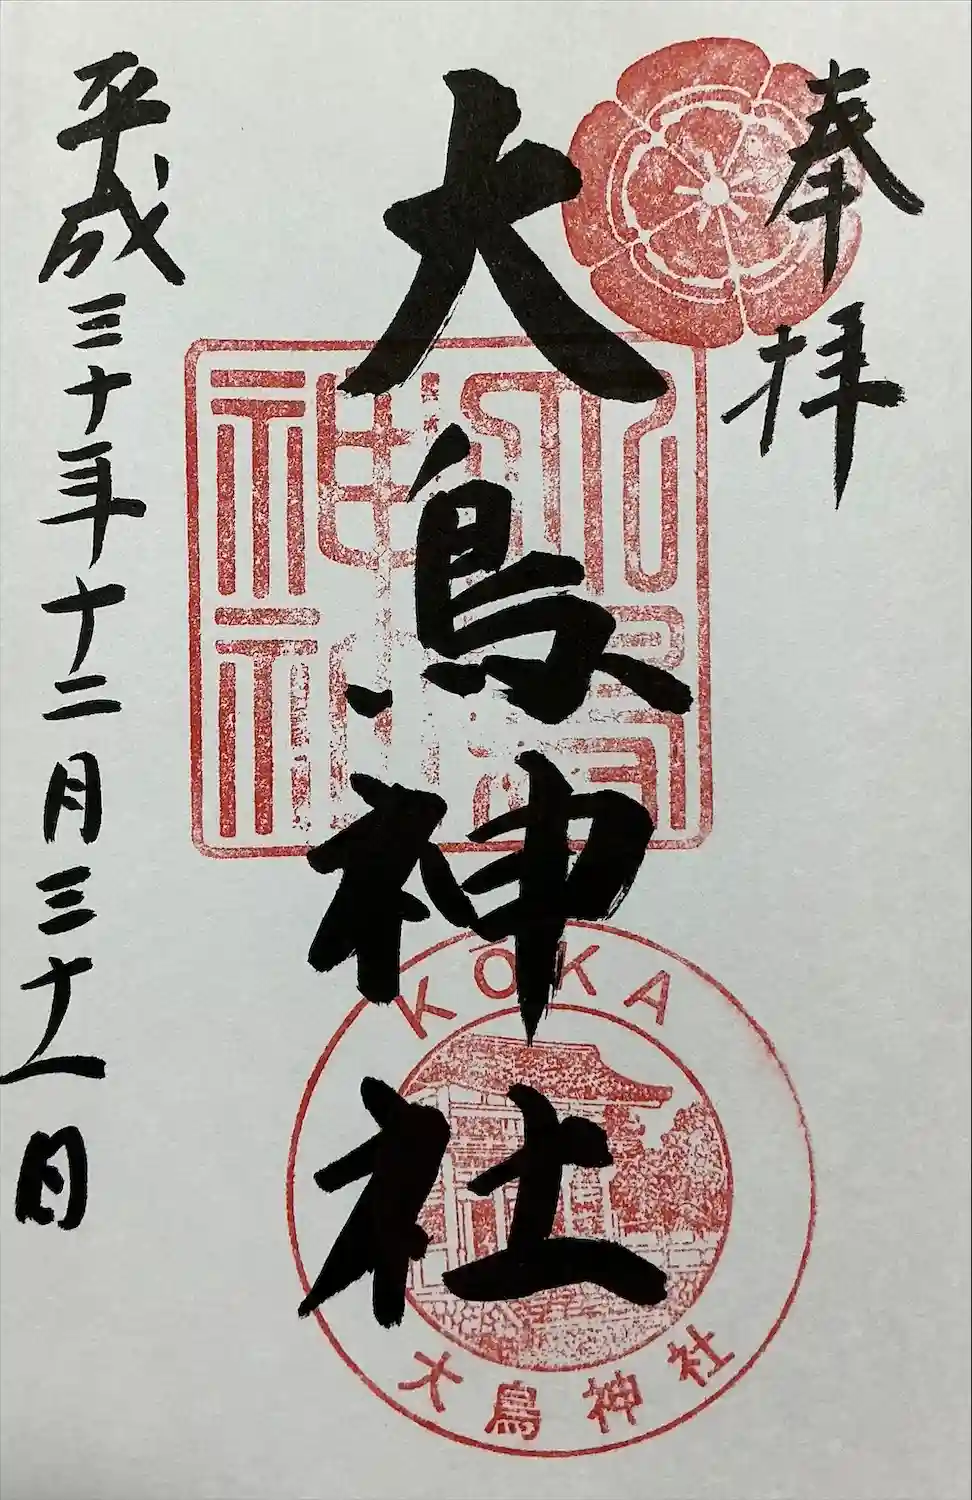 奉拝
大鳥神社
平成三十年十二月三十一日
KŌKA
大鳥神社